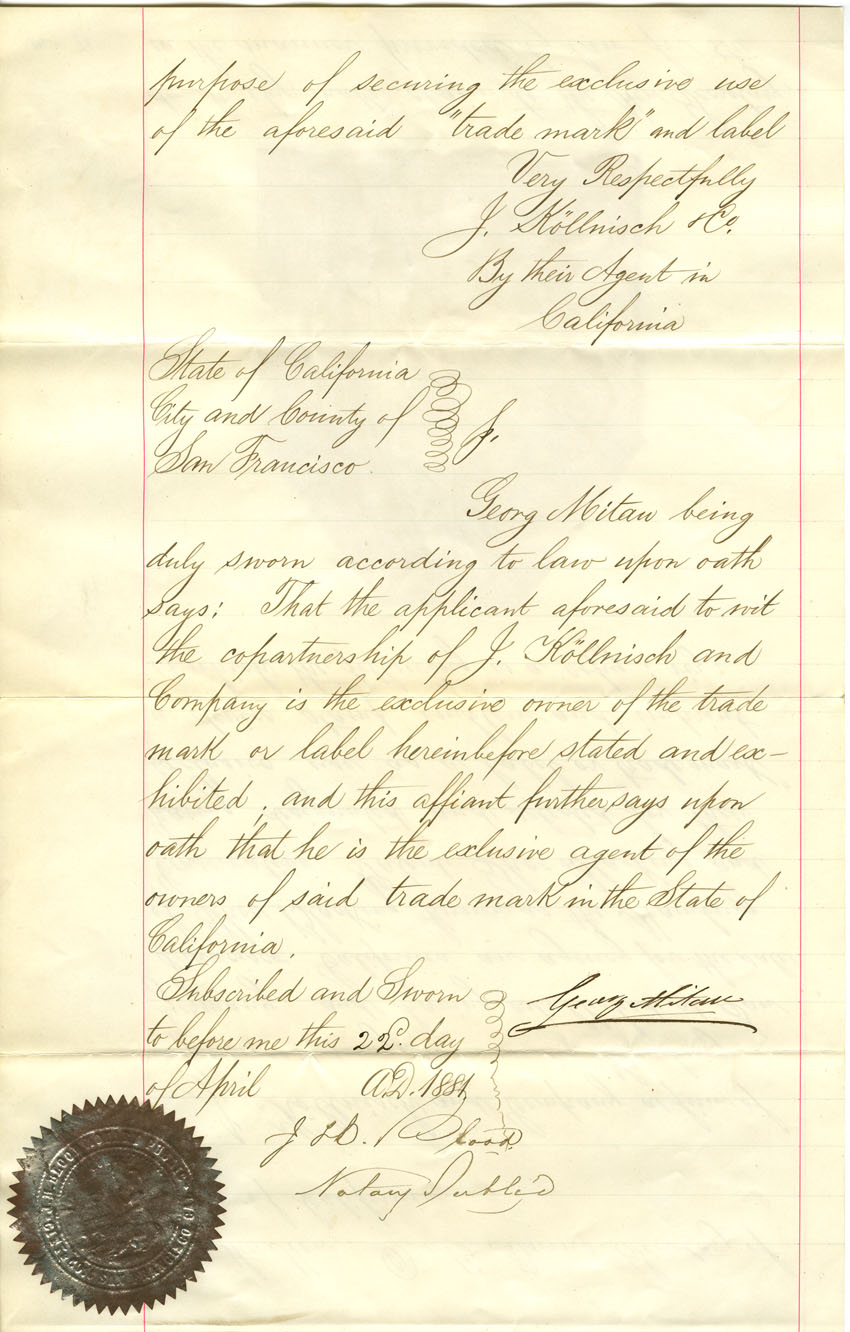 purpose of securing the exclusive use
of the aforesaid "trade mark" and label
Very Respectfully
J. Köllnisch & Co.
By their Agent in
California
State of California
City and County of
San Francisco.
Georg Mitau being
duly sworn according to law upon oath
says: That the applicant aforesaid to wit
the copartnership of J. Köllnisch and
Company is the exclusive owner of the trade
mark or label hereinbefore stated and ex-
hibited, and this affiant further says upon
oath that he is the exclusive agent of the
owners of said trade mark in the State of
California.
Subscribed and Sworn
Georg Mitau
to before me this day
of April A.D. 1881
J H. Blood
Notary Public